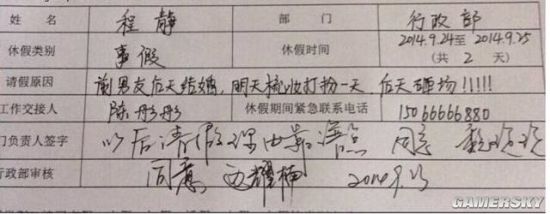 姓 名 程静 部 门 行政部
休假类别 事假 休假时间 2014.9.24至2014.9.25
(共 2 天)
请假原因 前男友后天结婚,明天梳妆打扮一天,后天砸场!!!!!
工作交接人 陈彤彤 休假期间紧急联系电话 15066666880
门负责人签字 以后请假理由 同意
行政部审核 同意 耀楠 2014.9.23
GAMERSKY